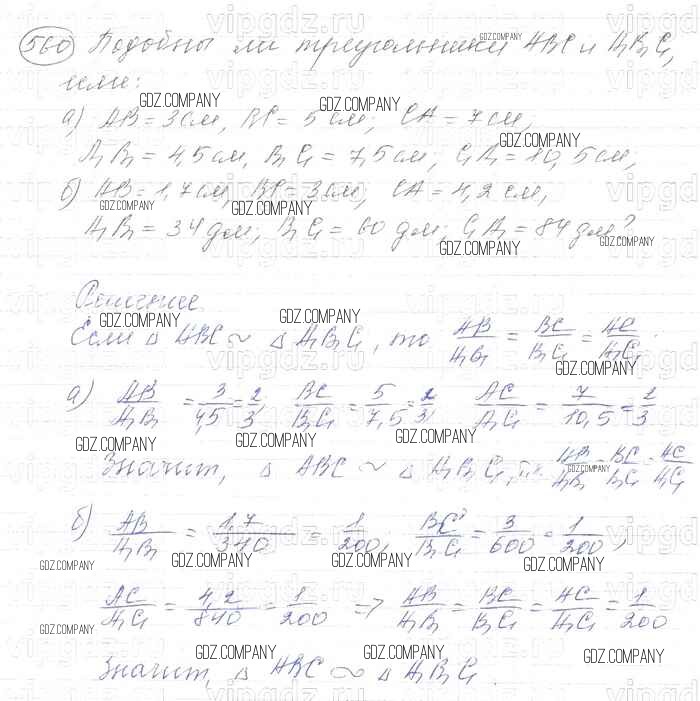 560 Подобны ли треугольники ABC и A₁B₁C₁,
если:
а) AB = 3 см, BC = 5 см; CA = 7 см,
A₁B₁ = 4,5 см, B₁C₁ = 7,5 см, C₁A₁ = 10,5 см,
б) AB = 1,7 см, BC = 3 см, CA = 4,2 см,
A₁B₁ = 34 дм; B₁C₁ = 60 дм; C₁A₁ = 84 дм?
Решение.
Если △ ABC ~ △ A₁B₁C₁, то AB/A₁B₁ = BC/B₁C₁ = AC/A₁C₁.
а) AB/A₁B₁ = 3/4,5 = 2/3, BC/B₁C₁ = 5/7,5 = 2/3, AC/A₁C₁ = 7/10,5 = 2/3
Значит, △ ABC ~ △ A₁B₁C₁, т.к. AB/A₁B₁ = BC/B₁C₁ = AC/A₁C₁
б) AB/A₁B₁ = 1,7/340 = 1/200, BC/B₁C₁ = 3/600 = 1/200,
AC/A₁C₁ = 4,2/840 = 1/200 => AB/A₁B₁ = BC/B₁C₁ = AC/A₁C₁ = 1/200
Значит, △ ABC ~ △ A₁B₁C₁
GDZ.COMPANY
vipgdz.ru